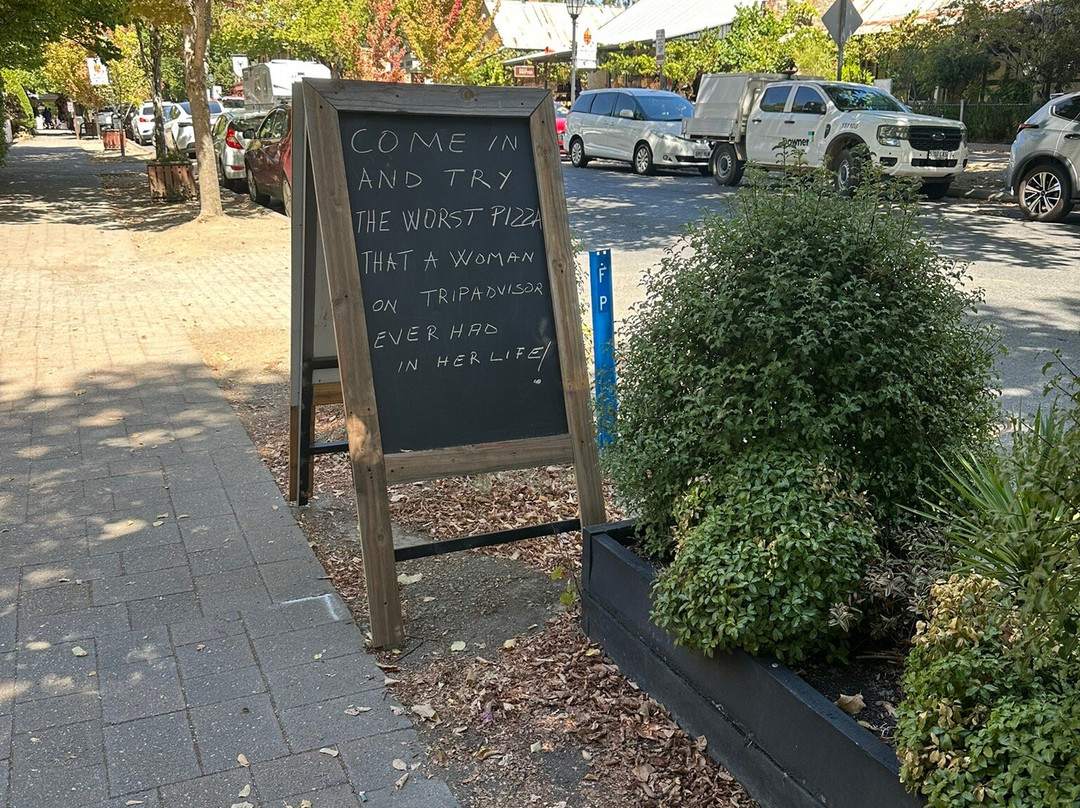 COME IN
AND TRY
THE WORST PIZZA
THAT A WOMAN
ON TRIPADVISOR
EVER HAD
IN HER LIFE!
F P
Downer